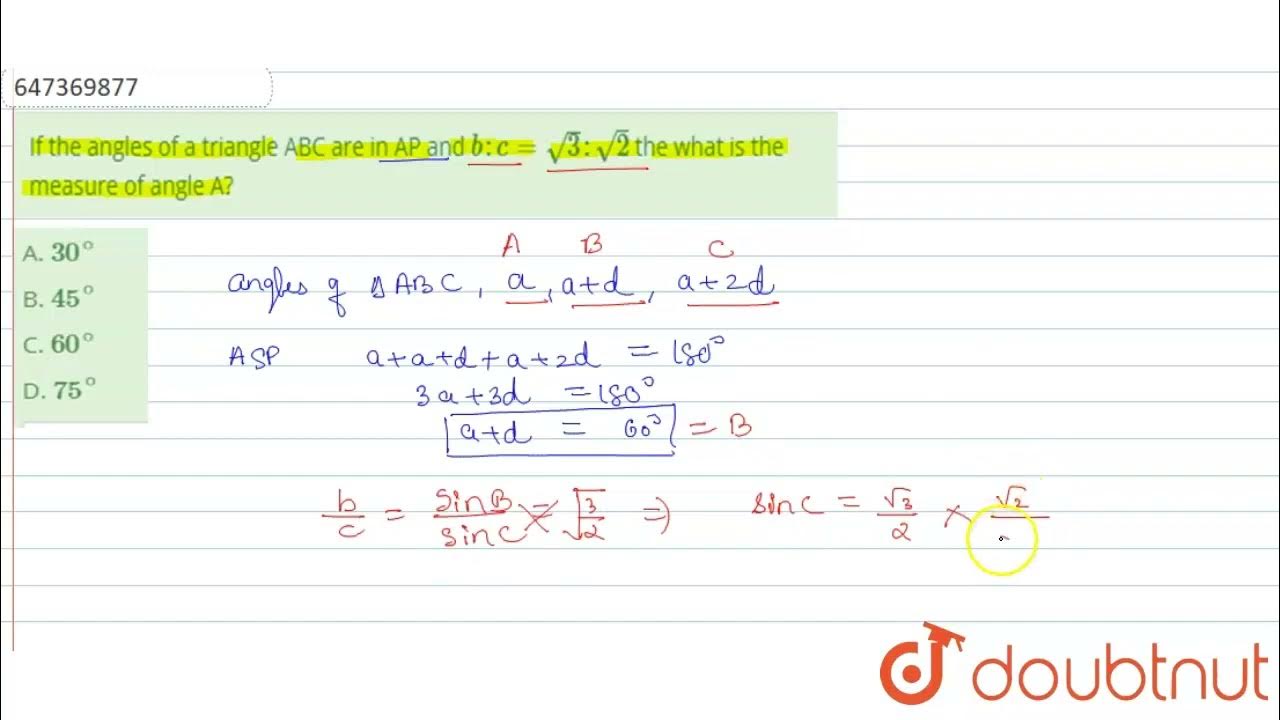 647369877
If the angles of a triangle ABC are in AP and b : c = √3 : √2 the what is the
measure of angle A?
A. 30°
B. 45°
C. 60°
D. 75°
A B C
angles of △ABC, a, a+d, a+2d
ASP a+a+d+a+2d = 180°
3a+3d = 180°
a+d = 60° = B
b/c = sinB/sinC = √3/√2 ⇒ sinC = √3/2 × √2/
doubtnut